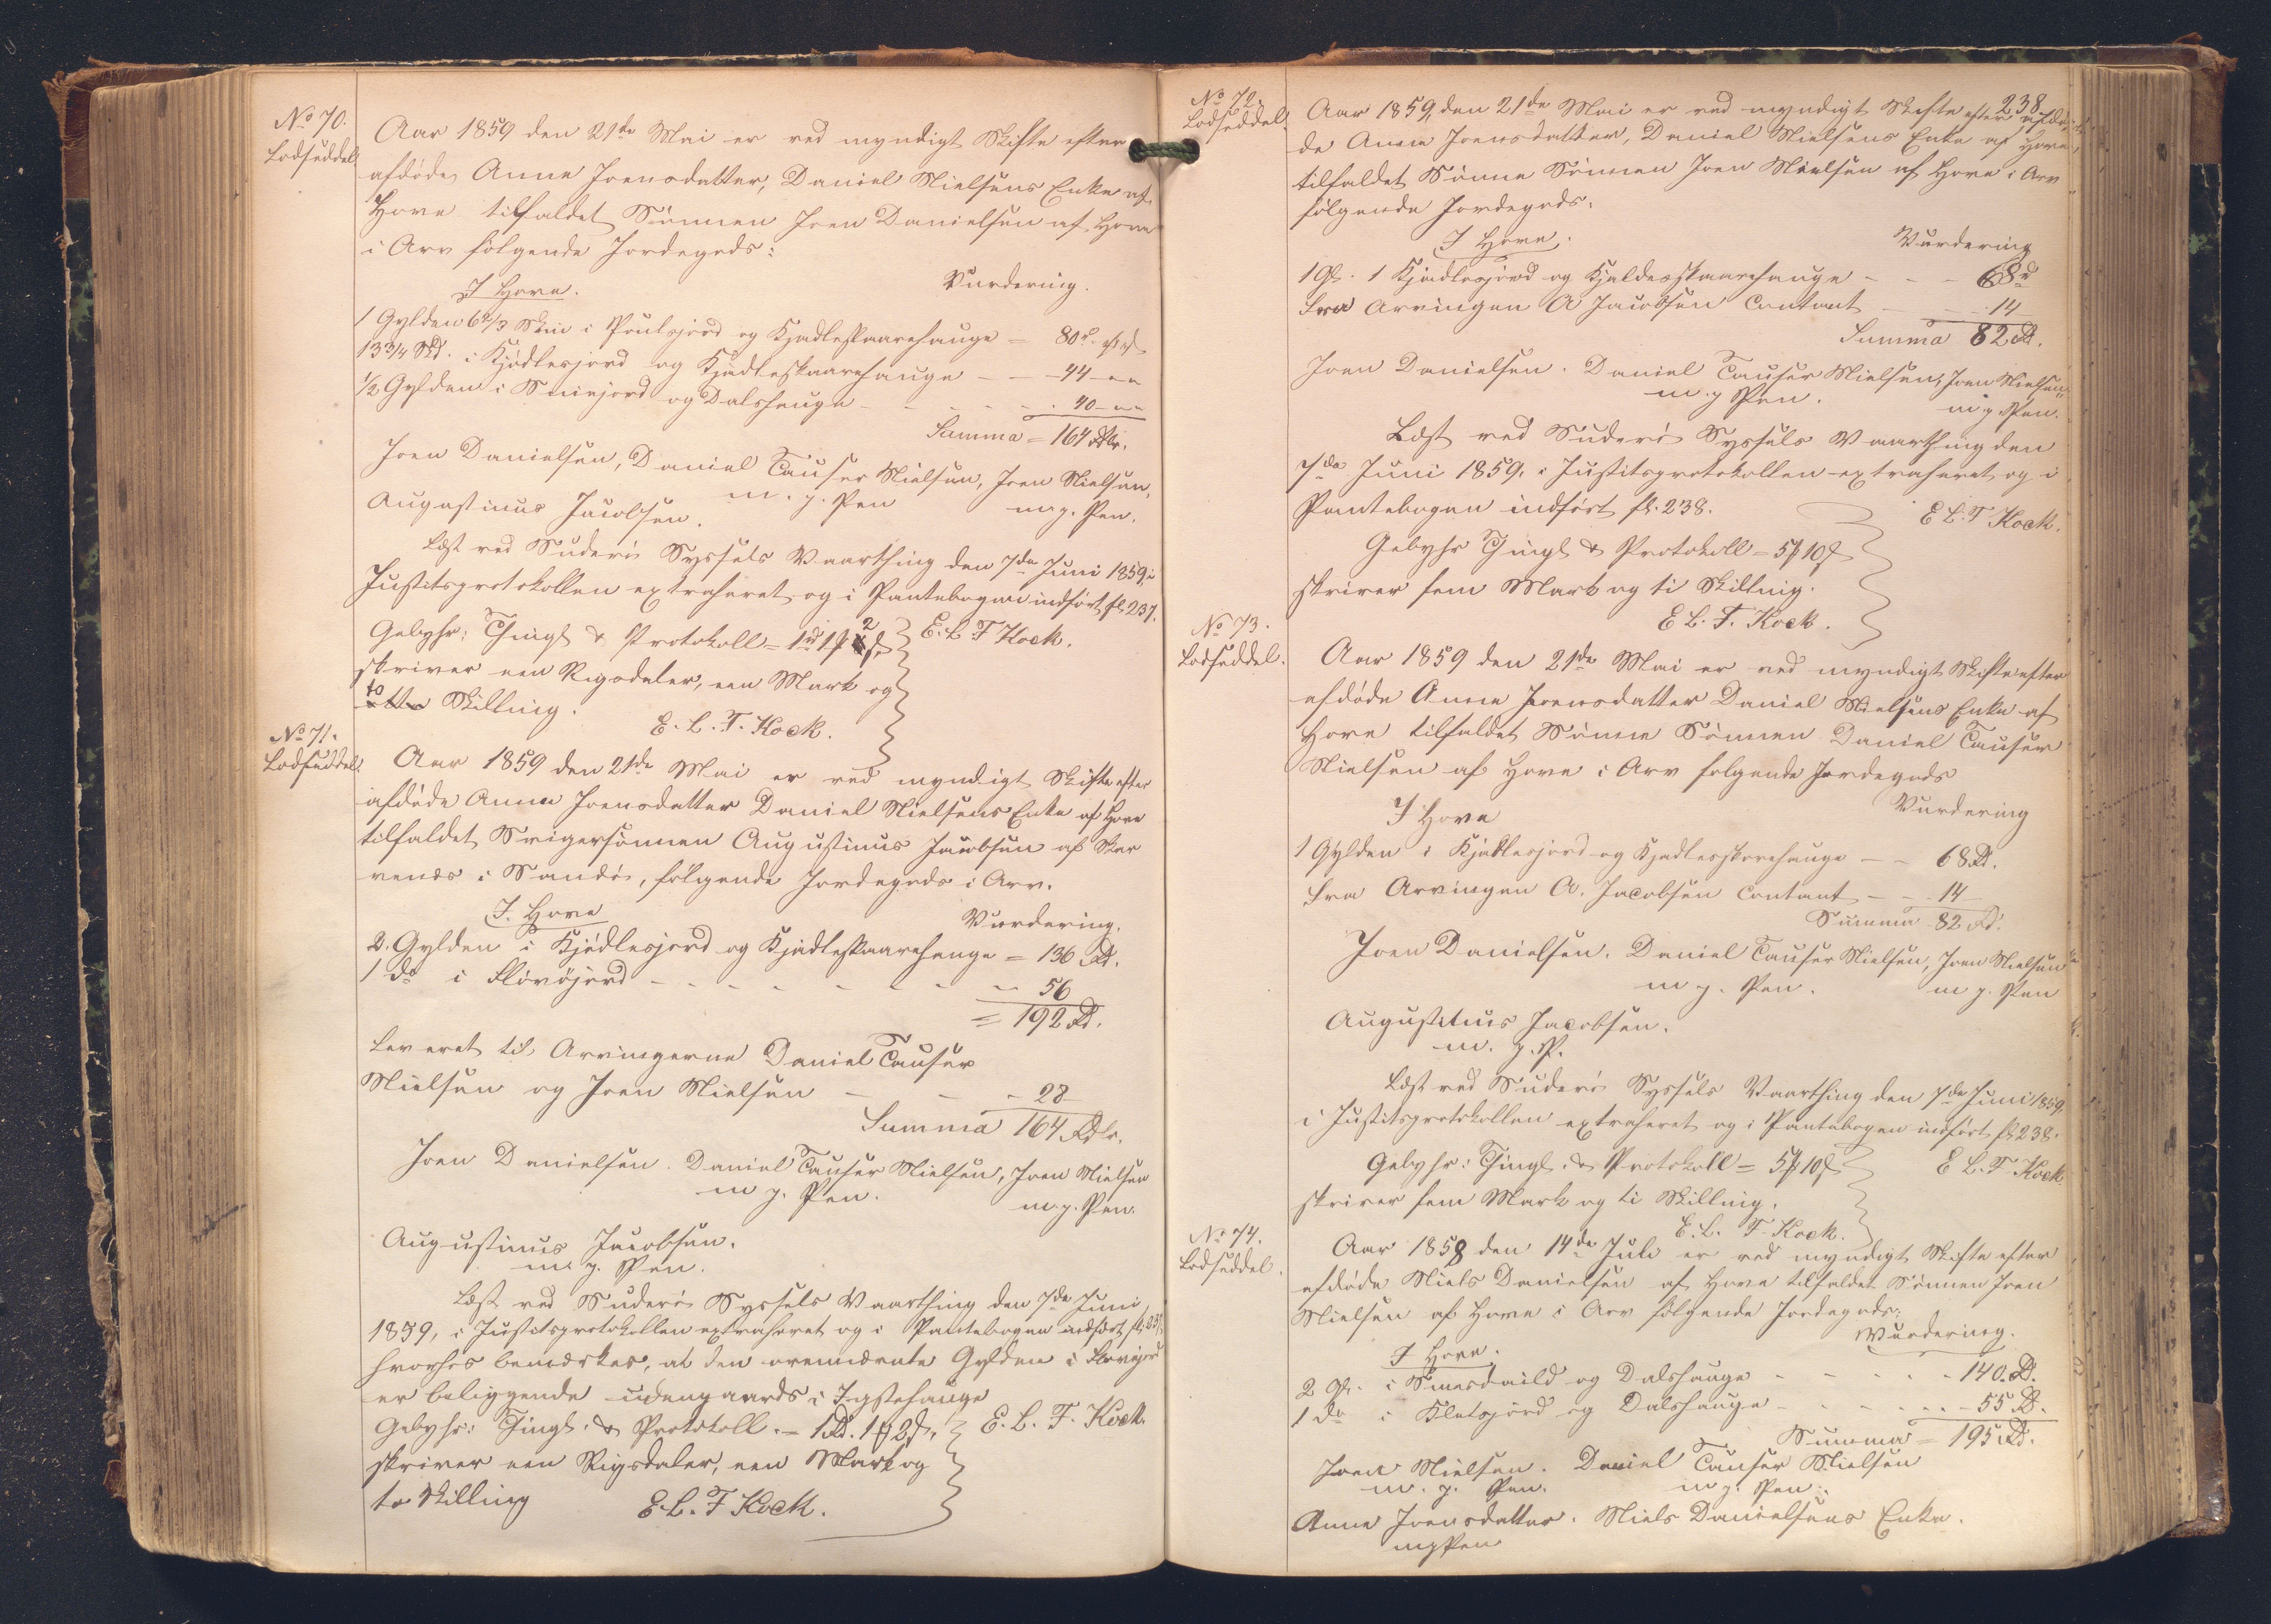 No 70.
Lodseddel
Aar 1859 den 21de Mai er ved myndigt Skifte efter
afdøde Anna Joensdatter, Daniel Nielsens Enke af
Hove tilfaldet Sønnen Joen Danielsen af Hove
i Arv følgende Jordegods:
I Hove. Vurdering.
1 Gylden 6 2/3 Skin i Poulsjord og Kjadleskaarehauge = 80
13 3/4 Skd. i Kjødlesjord og Kjadleskaarehauge - - 44 - "
1/2 Gylden i jord og Dalshauge - - - - 40 - "
Summa = 164 Rdlr.
Joen Danielsen, Daniel Causer Nielsen, Joen Nielsen,
m. p. Pen m. p. Pen.
Augustinus Jacobsen.
Læst ved Suderø Syssels Vaarthing den 7de Juni 1859, i
Justitsprotokollen extraheret og i Pantebogen indført fl 237.
Gebyhr: Thingl & Protokoll = 1rd 1 2
skriver een Rigsdaler, een Mark og
to Skilling.
E. L. F Kock.
E. L. F. Kock.
No 71.
Lodseddel.
Aar 1859 den 21de Mai er ved myndigt Skifte efter
afdøde Anna Joensdatter Daniel Nielsens Enke af Hove
tilfaldet Svigersønnen Augustinus Jacobsen af Skar
venes i Sandø, følgende Jordegods i Arv.
I. Hove Vurdering.
2. Gylden i Kjødlesjord og Kjadleskaarehauge = 136 Rd.
1 do i Fløvøjord - - - - - - - 56
= 192 Rd.
Leveret til Arvingerne Daniel Causer
Nielsen og Joen Nielsen - - - 28
Summa 164 Rdlr.
Joen Danielsen. Daniel Causer Nielsen, Joen Nielsen
m p. Pen. m. p. Pen.
Augustinus Jacobsen.
m. p. Pen.
Læst ved Suderø Syssels Vaarthing den 7de Juni
1859, i Justitsprotokollen extraheret og i Pantebogen indført fl. 237,
hvorhos bemærkes, at den ovennævnte Gylden i Fløvøjord
er beliggende udengaards i Igstehauge
Gebyhr: Thingl. & Protokoll. = 1Rd. 1 2
skriver een Rigsdaler, een Mark og
to Skilling
E. L. F. Kock.
E. L. F Kock.
238
No 72.
Lodseddel.
Aar 1859, den 21de Mai er ved myndigt Skifte efter afdø
de Anna Joensdatter, Daniel Nielsens Enke af Hove,
tilfaldet Sønne Sønnen Joen Nielsen af Hove i Arv
følgende Jordegods.
I Hove. Vurdering
1 Gl. i Kjødlesjord og Kjaldesskaarehauge - - - 68
Fra Arvingen A Jacobsen Contant - - - 14
Summa 82 Rd.
Joen Danielsen. Daniel Causer Nielsen, Joen Nielsen,
m. p Pen. m. p. Pen.
Læst ved Suderø Syssels Vaarthing den
7de Juni 1859, i Justitsprotokollen extraheret og i
Pantebogen indført fl. 238.
E L. F Kock.
Gebyhr Thingl & Protokoll = 5 10
skriver fem Mark og ti Skilling.
E L. F. Kock.
No 73.
Lodseddel.
Aar 1859 den 21de Mai er ved myndigt Skifte efter
afdøde Anna Joensdatter Daniel Nielsens Enke af
Hove tilfaldet Sønne Sønnen Daniel Causer
Nielsen af Hove i Arv følgende Jordegods
I Hove Vurdering
1 Gylden i Kjødlesjord og Kjadlesskorehauge - - 68 Rd.
Fra Arvingen A. Jacobsen Contant - - 14
Summa 82 Rd.
Joen Danielsen. Daniel Causer Nielsen, Joen Nielsen
m p. Pen. m p. Pen
Augustinus Jacobsen.
m. p. P.
Læst ved Suderø Syssels Vaarthing den 7de Juni 1859,
i Justitsprotokollen extraheret og i Pantebogen indført fl 238.
Gebyhr: Thingl. & Protokoll = 5 10
E L. F Kock
skriver fem Mark og ti Skilling.
E. L. F. Kock.
No 74.
Lodseddel.
Aar 1858 den 14de Juli er ved myndigt Skifte efter
afdøde Niels Danielsen af Hove tilfaldet Sønnen Joen
Nielsen af Hove i Arv følgende Jordegods:
I Hove. Vurdering.
2 Gl. i og Dalshauge - - - - - 140. Rd.
1 do i Kletsjord og Dalshauge - - - - - - 55 Rd.
Summa = 195 Rd.
Joen Nielsen. Daniel Causer Nielsen
m. p. Pen. m p. Pen.
Anna Joensdatter. Niels Danielsens Enke.
mpPen